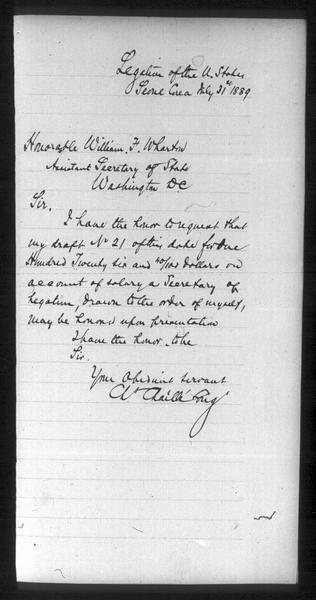 Legation of the U. States
Seoul Corea July 31st 1889
Honorable William. F. Wharton
Assistant Secretary of State
Washington DC
Sir.
I have the honor to request that
my draft No 21 of this date for One
Hundred Twenty six and 40/100 dollars on
account of salary as Secretary of
Legation, drawn to the order of myself,
may be honored upon presentation
I have the honor to be
Sir.
Your Obedient Servant
Chaillé Long